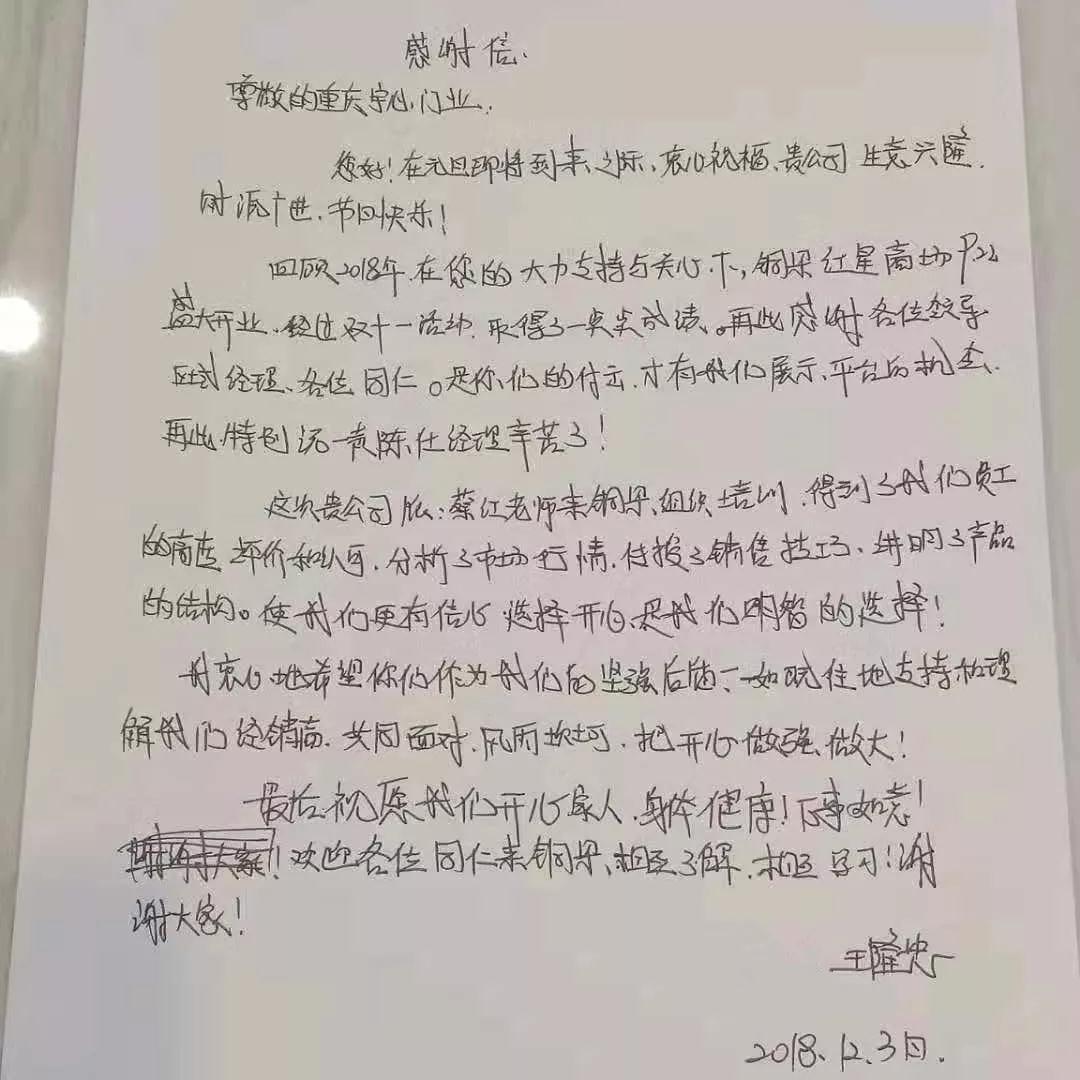 感谢信.
尊敬的重庆开心门业.
您好!在元旦即将到来之际、衷心祝福、贵公司生意兴隆.
财源广进、节日快乐!
回顾2018年.在您的大力支持与关心下,铜梁红星商场
盛大开业、经过双十一活动.取得了一点点成绩。再此感谢各位领导
区域经理、各位同仁。是你们的付出、才有我们展示、平台的机会、
再此、特别说一声陈仕经理辛苦了!
这次贵公司派:蔡红老师来铜梁、组织培训、得到了我们员工
的高度评价和认可、分析了市场行情、传授了销售技巧、讲明了产品
的结构。使我们更有信心选择开心、是我们明智的选择!
我衷心地希望你们作为我们的坚强后盾、一如既往地支持和理
解我们经销商、共同面对、风雨坎坷、把开心做强、做大!
最后祝愿我们开心家人、身体健康!万事如意!
欢迎各位同仁来铜梁、相互了解、相互学习!谢
谢大家!
王隆忠
2018.12.3日.